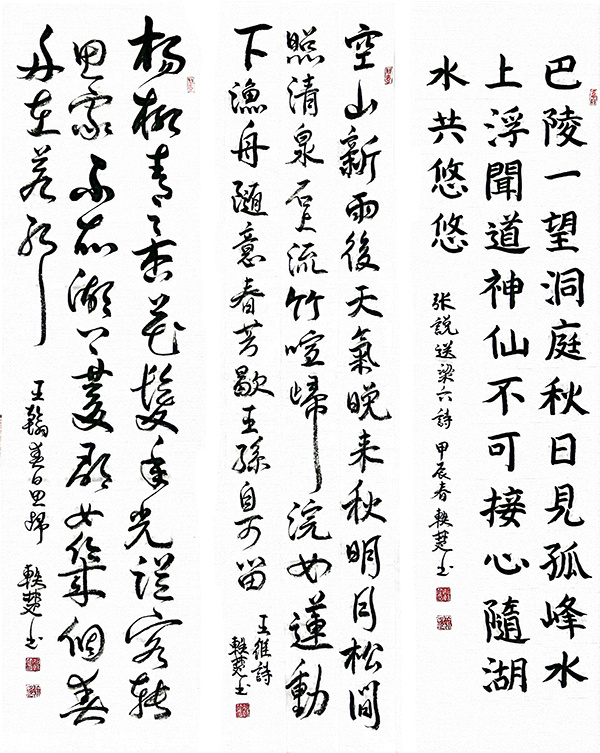 巴陵一望洞庭秋日見孤峰水
上浮聞道神仙不可接心隨湖
水共悠悠
张説送梁六詩 甲辰春 軼楚书
空山新雨後天氣晚来秋明月松間
照清泉石上流竹喧歸浣女蓮動
下漁舟隨意春芳歇王孫自可留
王維詩
軼楚书
杨柳青々杏花髮年光误客转
思家不知湖上菱歌女幾個春
舟在若耶
王翰春日思歸 軼楚书